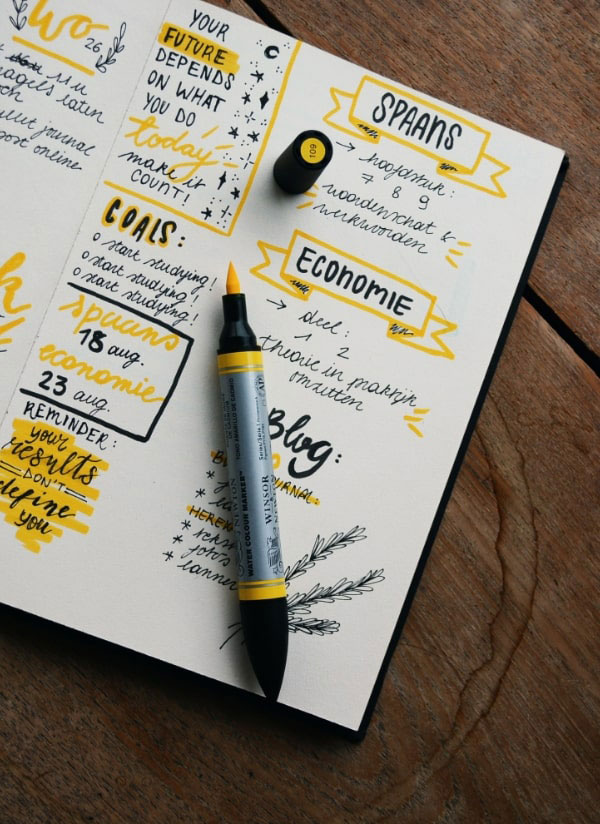 Wo
26
11 u
nagels laten
bullet journal
post online
YOUR
FUTURE
DEPENDS
ON WHAT
YOU DO
today
make it
COUNT!
GOALS:
o start studying!
o start studying!
o start studying!
spaans
18 aug.
economie
23 aug.
REMINDER:
your
results
DON'T
define
you
SPAANS
→ hoofdstuk:
7 8 9
woordenschat &
werkwoorden
ECONOMIE
→ deel:
1 2
theorie in praktijk
omzetten
Blog:
JOURNAL:
109
WINSOR
NEWTON
WATER COLOUR MARKER